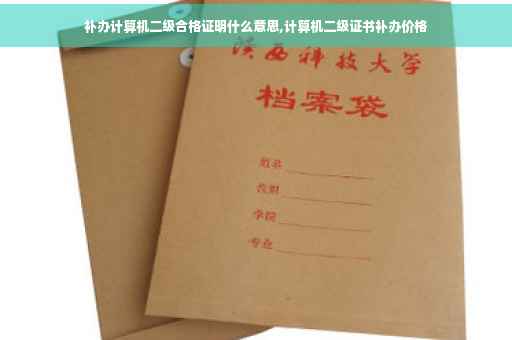 补办计算机二级合格证明什么意思,计算机二级证书补办价格
陕西科技大学
档案袋
姓名
学院
专业